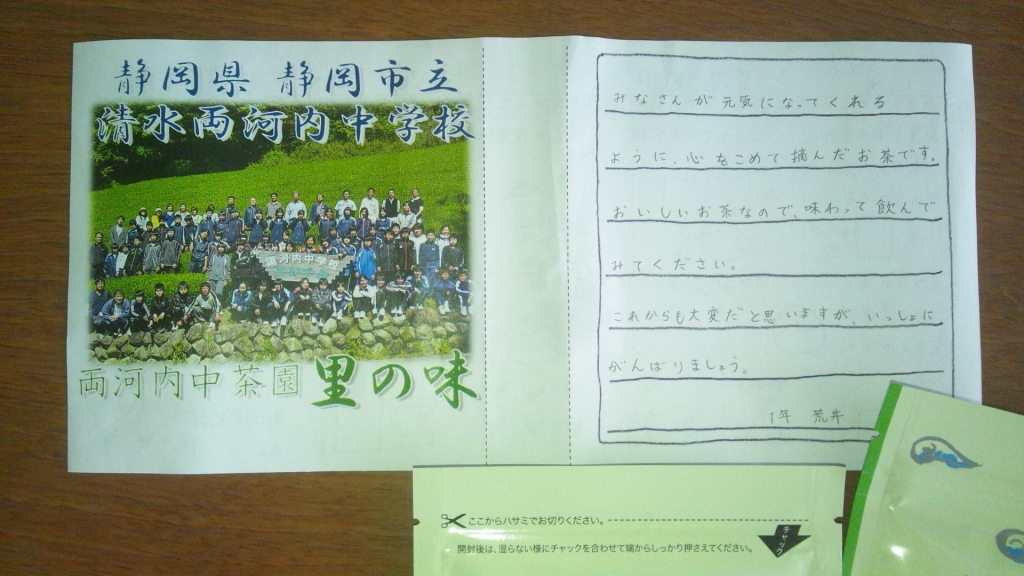 静岡県 静岡市立
清水両河内中学校
両河内中学校
両河内中茶園 里の味
みなさんが元気になってくれる
ように、心をこめて摘んだお茶です。
おいしいお茶なので、味わって飲んで
みてください。
これからも大変だと思いますが、いっしょに
がんばりましょう。
1年 荒井
ここからハサミでお切りください。
開封後は、湿らない様にチャックを合わせて端からしっかり押さえてください。
チャック